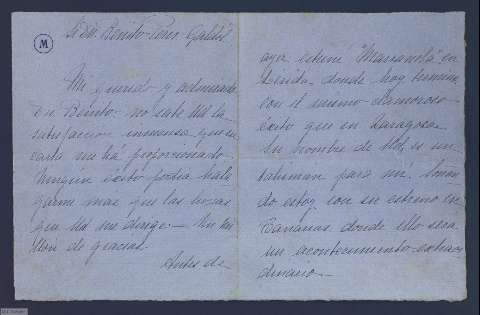 M
Sr. Dn. Benito Perez Galdós
Mi querido y admirado
Dn Benito: no sabe Vd la
satisfacción inmensa que su
carta me há proporcionado.
Ningún éxito podia hala
garme mas que las frases
que Vd me dirige.— Un mi
llón de gracias.
Antes de
ayer estrené "Marianela" en
Lérida, donde hoy termino
con el mismo clamoroso
éxito que en Zaragoza.
Su nombre de Vd, es un
talisman para mi.
do estoy con su estreno en
Canarias donde ello sera
un acontecimiento extraor
dinario.—